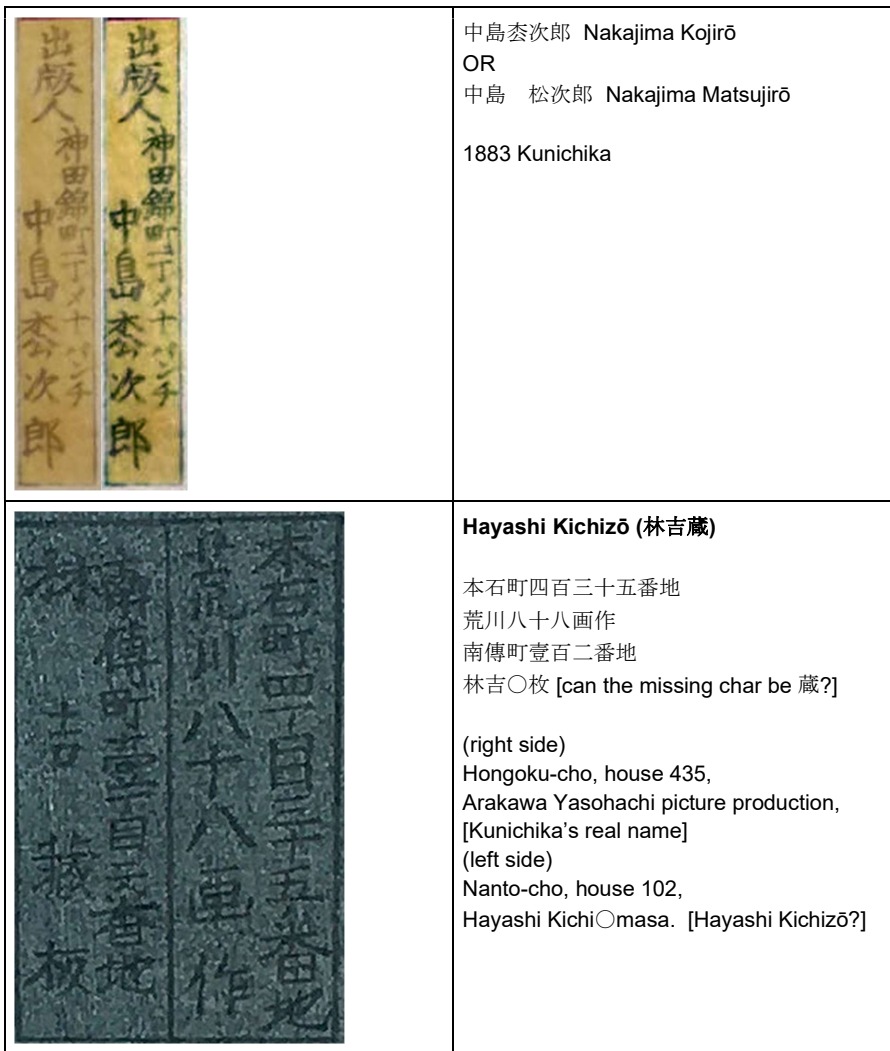 出版人
神田錦町二丁メ十バンチ
中島枩次郎
出版人
神田錦町二丁メ十バンチ
中島枩次郎
中島枩次郎 Nakajima Kojirō
OR
中島 松次郎 Nakajima Matsujirō
1883 Kunichika
本石町四丁目三十五番地
荒川八十八画作
南傳町壹丁目番地
林吉蔵板
Hayashi Kichizō (林吉蔵)
本石町四百三十五番地
荒川八十八画作
南傳町壹百二番地
林吉○枚 [can the missing char be 蔵?]
(right side)
Hongoku-cho, house 435,
Arakawa Yasohachi picture production,
[Kunichika’s real name]
(left side)
Nanto-cho, house 102,
Hayashi Kichi○masa. [Hayashi Kichizō?]